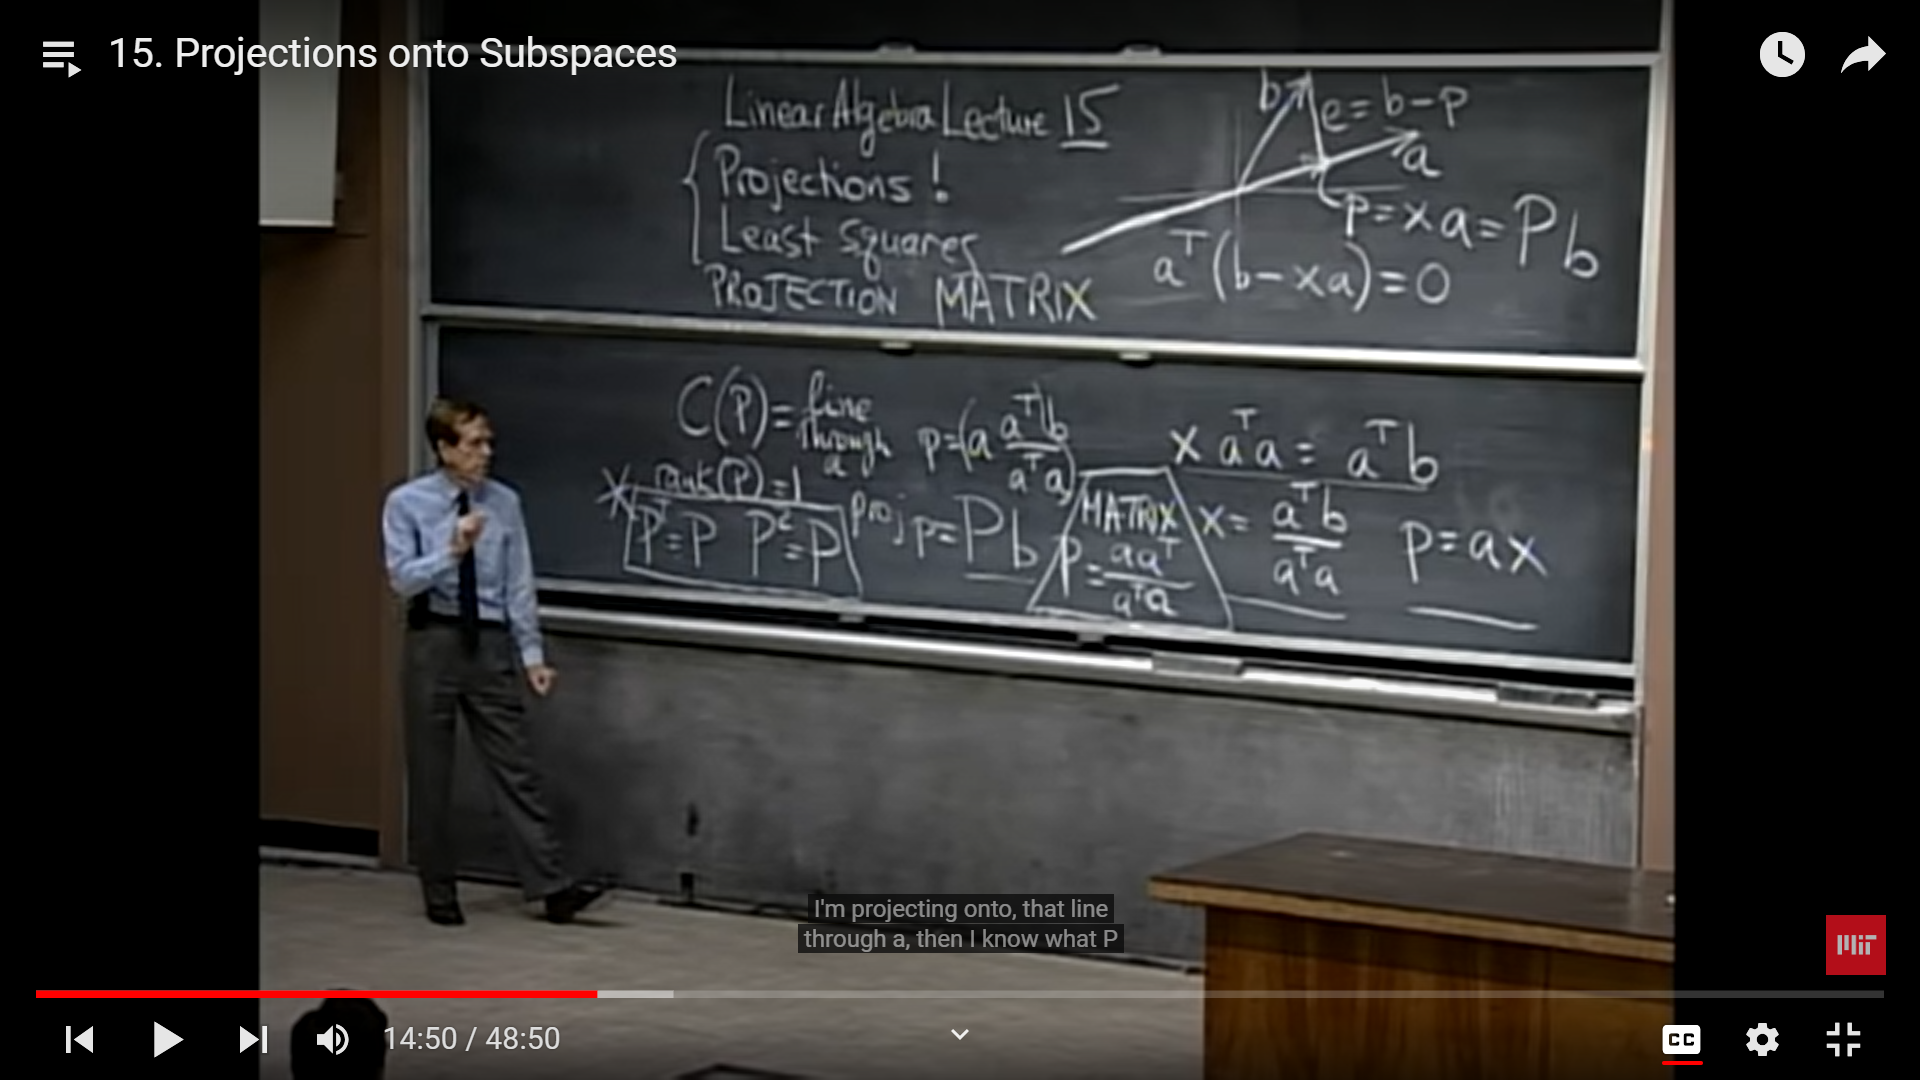 15. Projections onto Subspaces
Linear Algebra Lecture 15
Projections !
Least Squares
PROJECTION MATRIX
b
e = b - p
a
p = xa = Pb
aᵀ(b - xa) = 0
C(P) = line
through
a
rank(P) = 1
Pᵀ = P P² = P
p = (a aᵀb / aᵀa)
proj p = Pb
MATRIX
P = aaᵀ / aᵀa
x aᵀa = aᵀb
x = aᵀb / aᵀa
p = ax
I'm projecting onto, that line
through a, then I know what P
MIT
14:50 / 48:50
CC